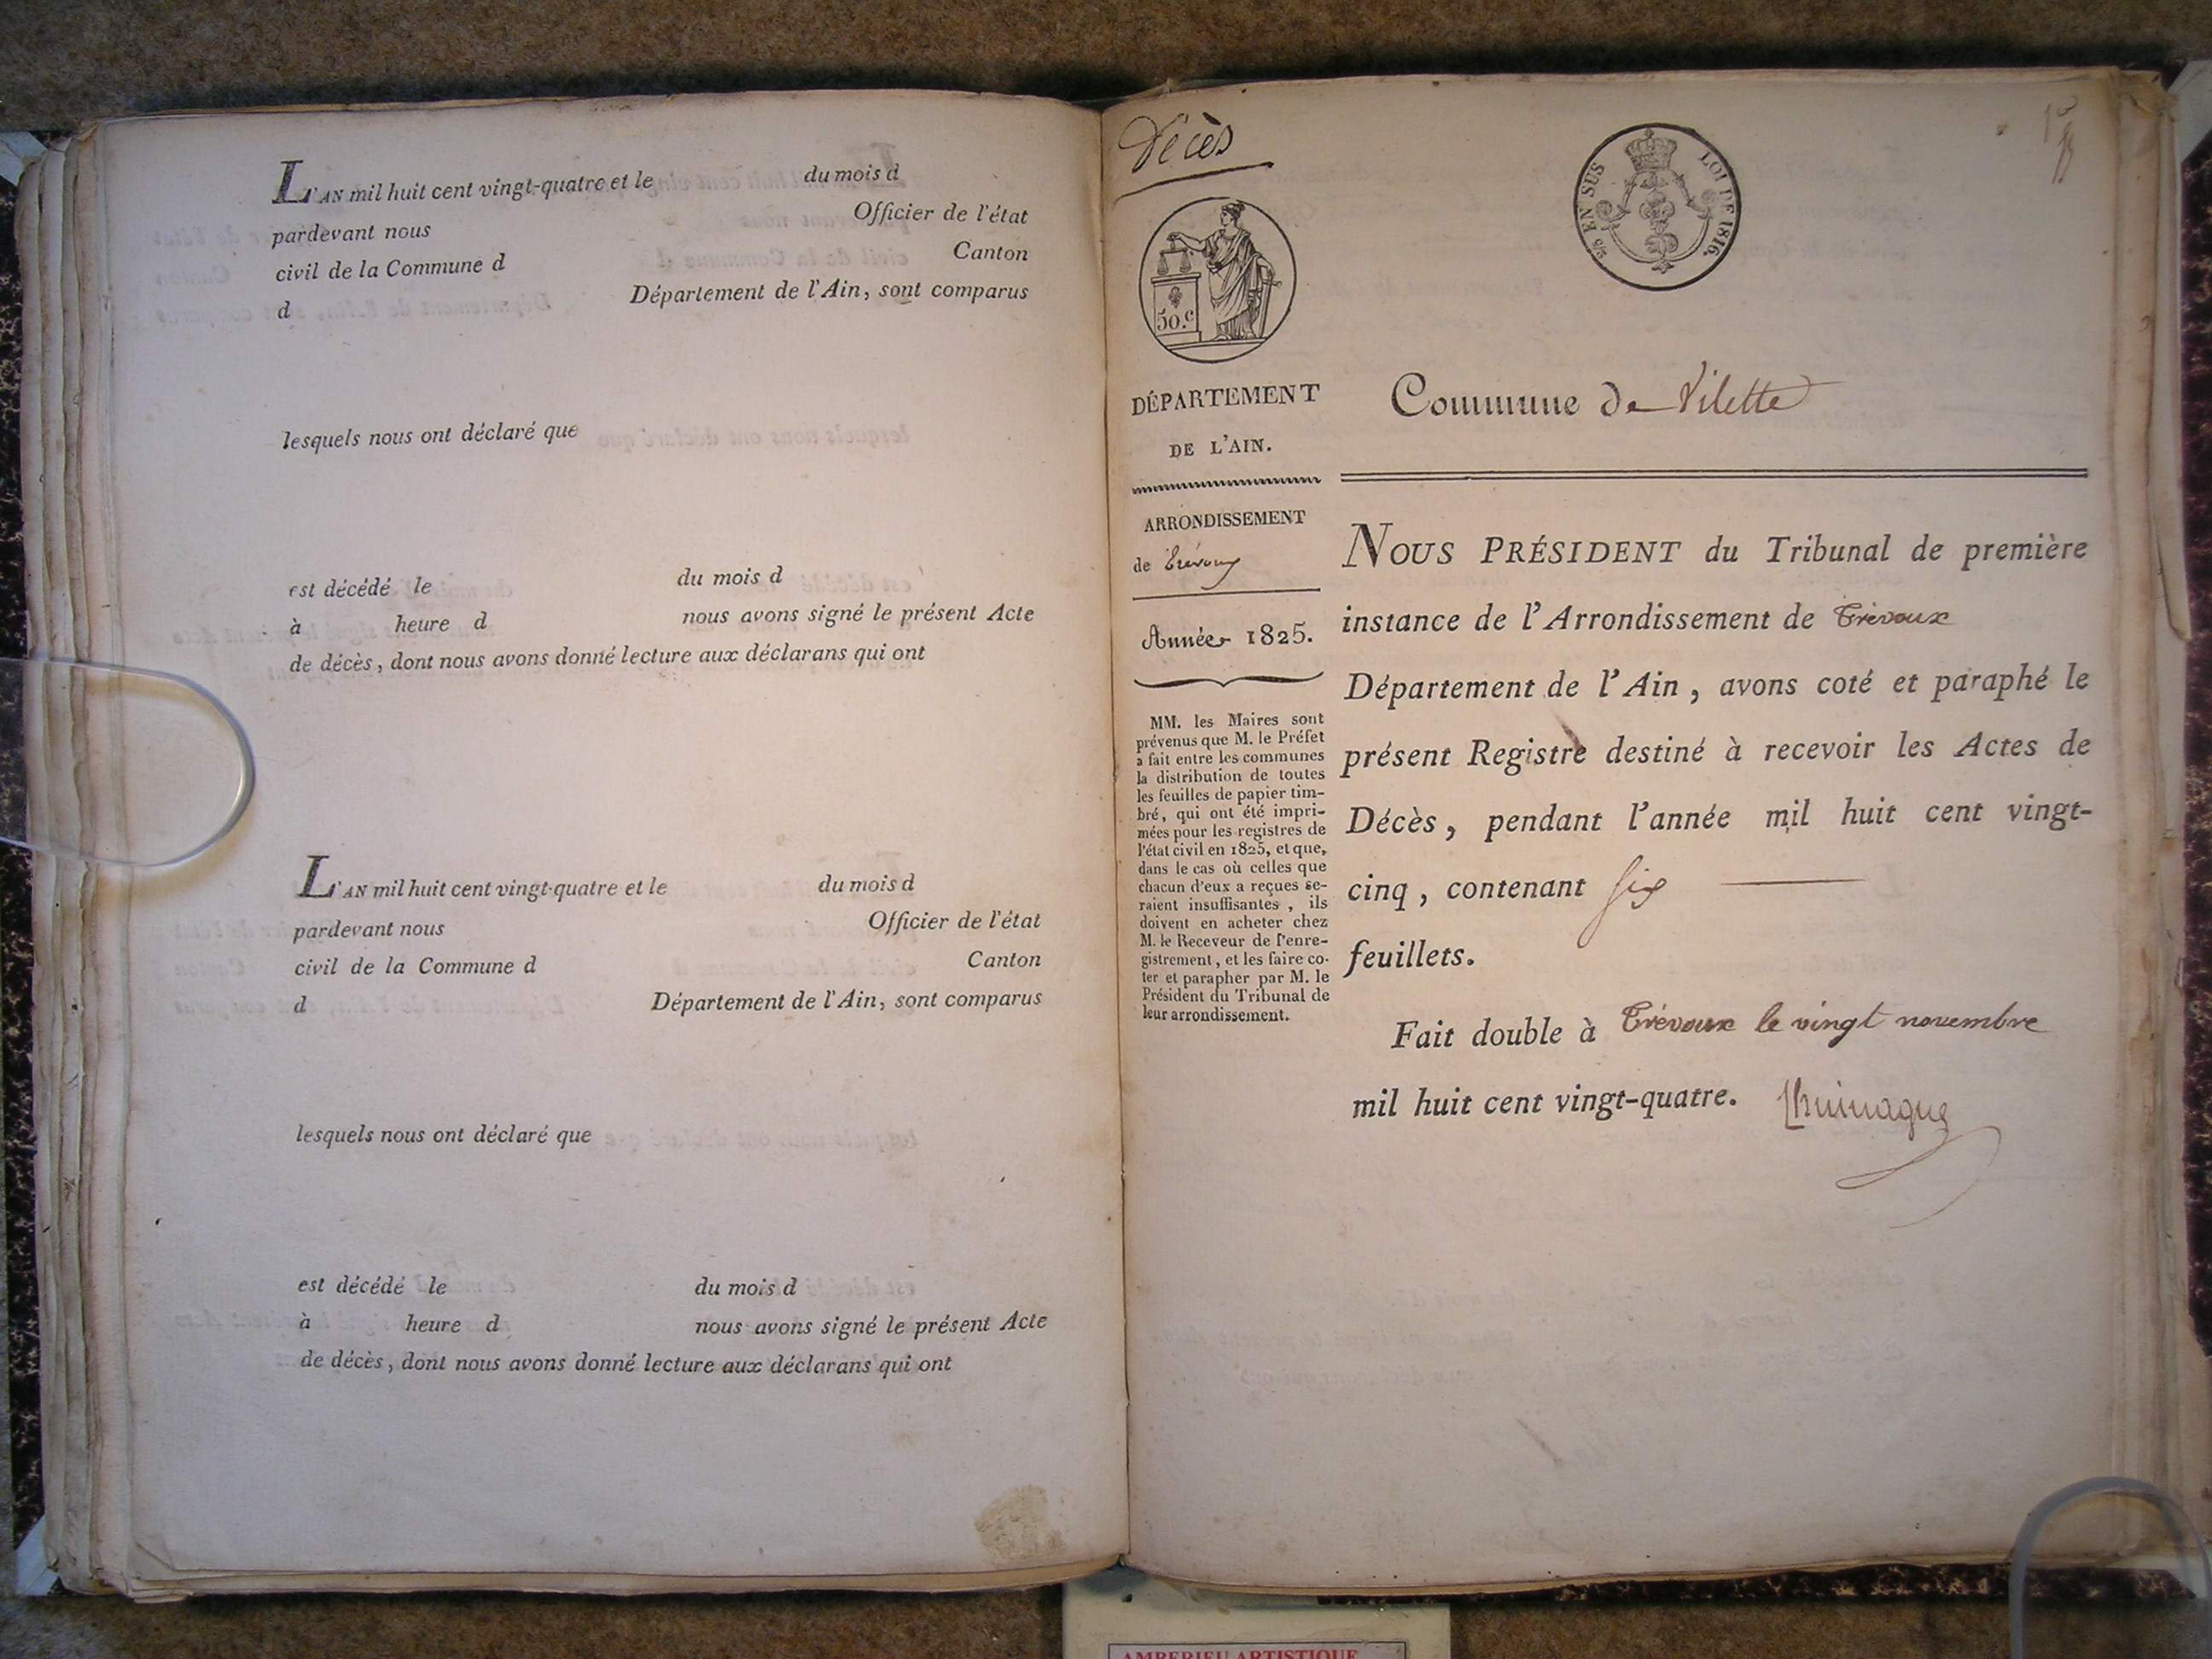 L'AN mil huit cent vingt-quatre et le du mois d
pardevant nous Officier de l'état
civil de la Commune d Canton
d Département de l'Ain, sont comparus
lesquels nous ont déclaré que
est décédé le du mois d
à heure d nous avons signé le présent Acte
de décès, dont nous avons donné lecture aux déclarans qui ont
L'AN mil huit cent vingt-quatre et le du mois d
pardevant nous Officier de l'état
civil de la Commune d Canton
d Département de l'Ain, sont comparus
lesquels nous ont déclaré que
est décédé le du mois d
à heure d nous avons signé le présent Acte
de décès, dont nous avons donné lecture aux déclarans qui ont
Décès
50.c
EN SUS LOI DE 1816.
DÉPARTEMENT
DE L'AIN.
ARRONDISSEMENT
de Trévoux
Année 1825.
MM. les Maires sont
prévenus que M. le Préfet
a fait entre les communes
la distribution de toutes
les feuilles de papier tim-
bré, qui ont été impri-
mées pour les registres de
l'état civil en 1825, et que,
dans le cas où celles que
chacun d'eux a reçues se-
raient insuffisantes, ils
doivent en acheter chez
M. le Receveur de l'enre-
gistrement, et les faire co-
ter et parapher par M. le
Président du Tribunal de
leur arrondissement.
Commune de Vilette
NOUS PRÉSIDENT du Tribunal de première
instance de l'Arrondissement de Trévoux
Département de l'Ain, avons coté et paraphé le
présent Registre destiné à recevoir les Actes de
Décès, pendant l'année mil huit cent vingt-
cinq, contenant six
feuillets.
Fait double à Trévoux le vingt novembre
mil huit cent vingt-quatre.
AMBERIEU ARTISTIQUE